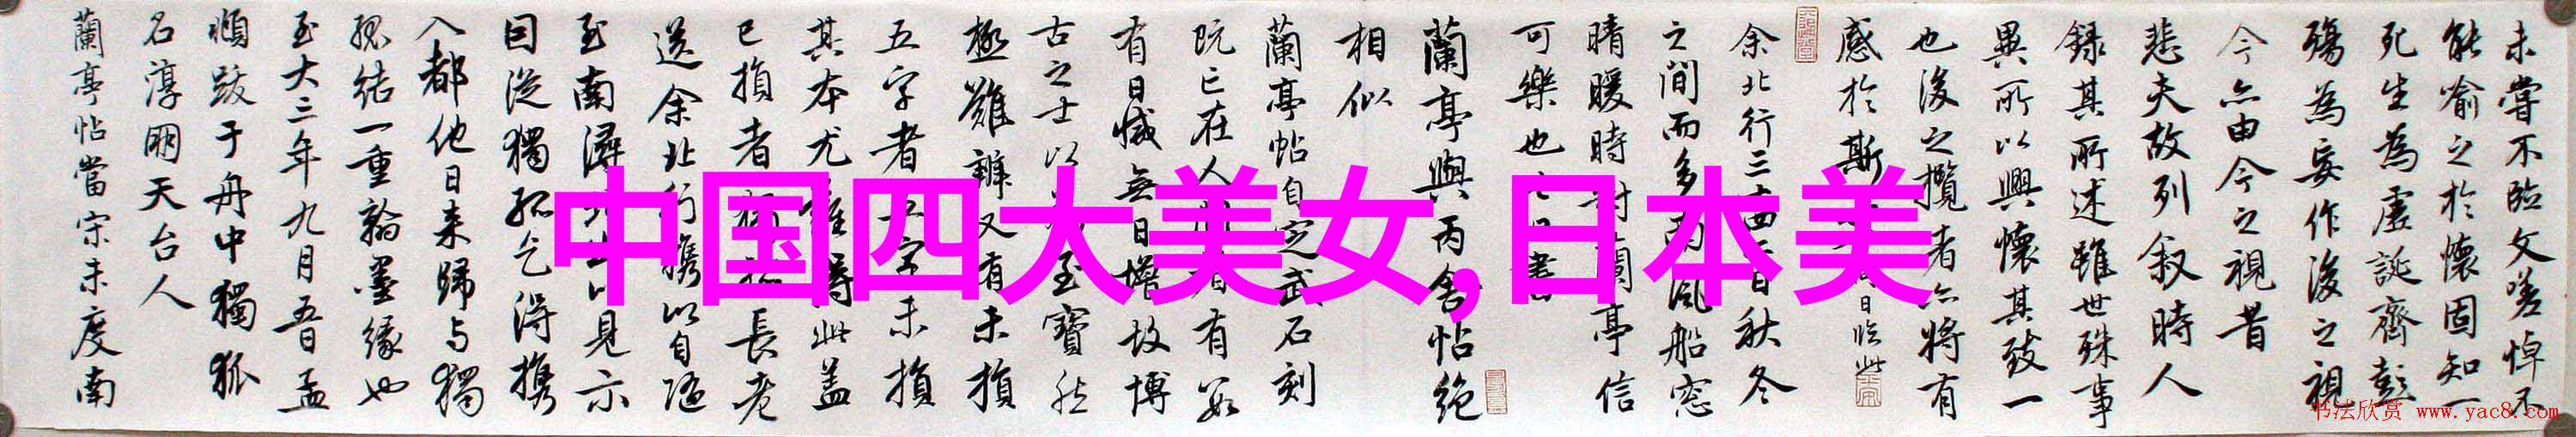 未嘗不臨文嗟悼不
能喻之於懷固知一
死生為虛誕齊彭
殤為妄作後之視
今亦由今之視昔
悲夫故列敘時人
錄其所述雖世殊事
異所以興懷其致一
也後之攬者亦將有
感於斯
余北行三十四日秋冬
之間而多雨風船窓
晴暖時對蘭亭信
可樂也七日書
蘭亭與丙舍帖絶
相似
蘭亭帖自定武石刻
既亡在人間者有數
有日減無日增故博
古之士以為至寶然
極難辨又有未損
五字者五字未損
其本尤難得此蓋
已損者獨孤長老
送余北行攜以自隨
至南潯北出以見示
因從獨孤乞得攜
入都他日來歸与獨
孤結一重翰墨緣也
至大三年九月五日孟
頫跋于舟中獨孤
名淳朋天台人
蘭亭帖當宋未度南
中国四大美女,日本美
书法欣赏 www.yac8.com